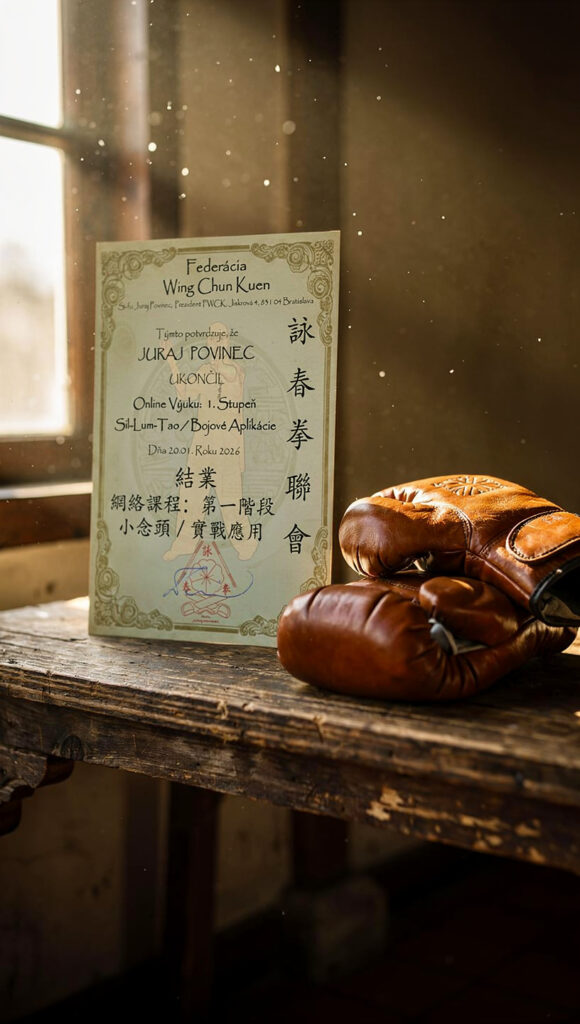 Federácia
Wing Chun Kuen
Si-fu Juraj Povinec, Prezident FWCK, Jiskrova 4, 831 04 Bratislava
Týmto potvrdzuje, že
JURAJ POVINEC
UKONČIL
Online Výuku: 1. Stupeň
Sil-Lum-Tao / Bojové Aplikácie
Dňa 20.01. Roku 2026
結業
網絡課程：第一階段
小念頭 / 實戰應用
詠春拳聯會
詠
春 拳